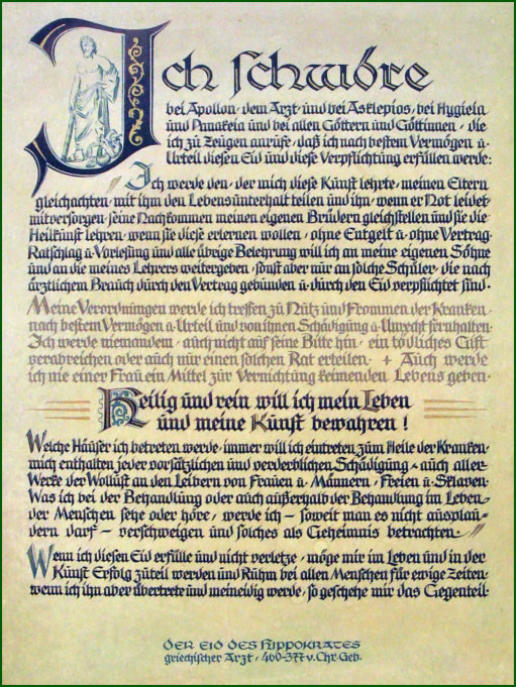 Ich schwöre
bei Apollon · dem Arzt · und bei Asklepios, bei Hygieia
und Panakeia und bei allen Göttern und Göttinnen · die
ich zu Zeugen anrufe, daß ich nach bestem Vermögen u·
Urteil diesen Eid und diese Verpflichtung erfüllen werde:
Ich werde den · der mich diese Kunst lehrte · meinen Eltern
gleichachten · mit ihm den Lebensunterhalt teilen und ihn · wenn er Not leidet·
mitversorgen · seine Nachkommen meinen eigenen Brüdern gleichstellen und sie die
Heilkunst lehren · wenn sie diese erlernen wollen · ohne Entgelt u · ohne Vertrag·
Ratschlag u · Vorlesung und alle übrige Belehrung will ich an meine eigenen Söhne
und an die meines Lehrers weitergeben · sonst aber nur an solche Schüler · die nach
ärztlichem Brauch durch den Vertrag gebunden u · durch den Eid verpflichtet sind ·
Meine Verordnungen werde ich treffen zu Nutz und Frommen der Kranken ·
nach bestem Vermögen u · Urteil und von ihnen Schädigung u · Unrecht fernhalten·
Ich werde niemandem · auch nicht auf seine Bitte hin · ein tödliches Gift
verabreichen oder auch nur einen solchen Rat erteilen · + Auch werde
ich nie einer Frau ein Mittel zur Vernichtung keimenden Lebens geben ·
Heilig und rein will ich mein Leben
und meine Kunst bewahren !
Welche Häuser ich betreten werde · immer will ich eintreten zum Heile der Kranken·
mich enthalten jeder vorsätzlichen und verderblichen Schädigung · auch aller
Werke der Wollust an den Leibern von Frauen u · Männern · Freien u · Sklaven·
Was ich bei der Behandlung oder auch außerhalb der Behandlung im Leben
der Menschen sehe oder höre, werde ich – soweit man es nicht ausplau=
dern darf – verschweigen und solches als Geheimnis betrachten ·
Wenn ich diesen Eid erfülle und nicht verletze · möge mir im Leben und in der
Kunst Erfolg zuteil werden und Ruhm bei allen Menschen für ewige Zeiten·
wenn ich ihn aber übertrete und meineidig werde, so geschehe mir das Gegenteil·
DER EID DES HIPPOKRATES
griechischer Arzt · 460-377 v. Chr. Geb.